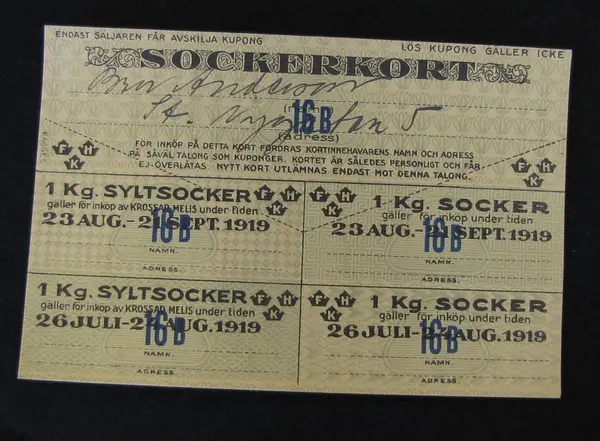 ENDAST SÄLJAREN FÅR AVSKILJA KUPONG
LÖS KUPONG GÄLLER ICKE
SOCKERKORT
Andersson
16 B
St. 5
(adress)
FÖR INKÖP PÅ DETTA KORT FORDRAS KORTINNEHAVARENS NAMN OCH ADRESS
PÅ SÅVÄL TALONG SOM KUPONGER. KORTET ÄR SÅLEDES PERSONLIGT OCH FÅR
EJ ÖVERLÅTAS. NYTT KORT UTLÄMNAS ENDAST MOT DENNA TALONG.
F H K
F H K
1 Kg. SYLTSOCKER F H K
gäller för inköp av KROSSAD MELIS under tiden
23 AUG.-21 SEPT. 1919
16 B
NAMN.
ADRESS.
F H K 1 Kg. SOCKER
gäller för inköp under tiden
23 AUG.- SEPT. 1919
16 B
NAMN.
ADRESS.
1 Kg. SYLTSOCKER F H K
gäller för inköp av KROSSAD MELIS under tiden
26 JULI-22 AUG. 1919
16 B
NAMN.
ADRESS.
F H K 1 Kg. SOCKER
gäller för inköp under tiden
26 JULI-22 AUG. 1919
16 B
NAMN.
ADRESS.